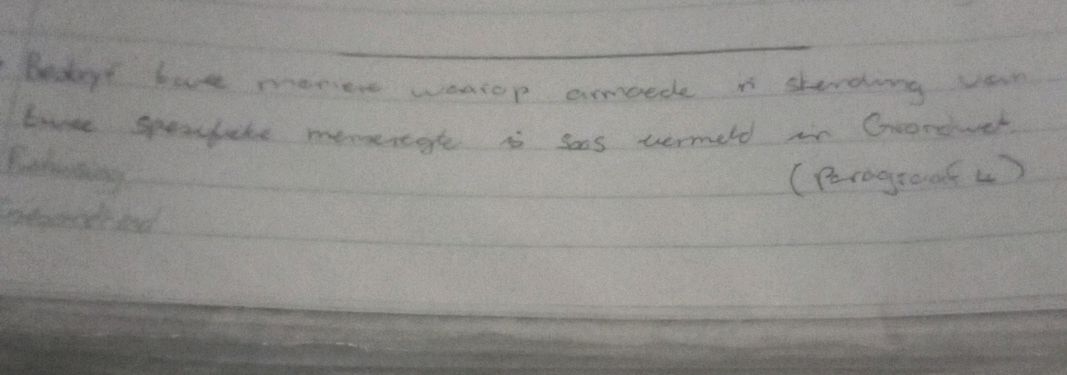 twee maniere waarop armoede 'n skending van
twee spesifieke menseregte is soos vermeld in Grondwet.
(Paragraaf 4)